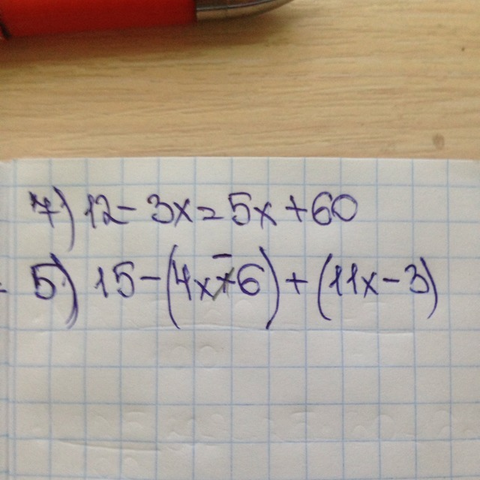 7) 12 - 3x = 5x + 60
5) 15 - (4x - 6) + (11x - 3)